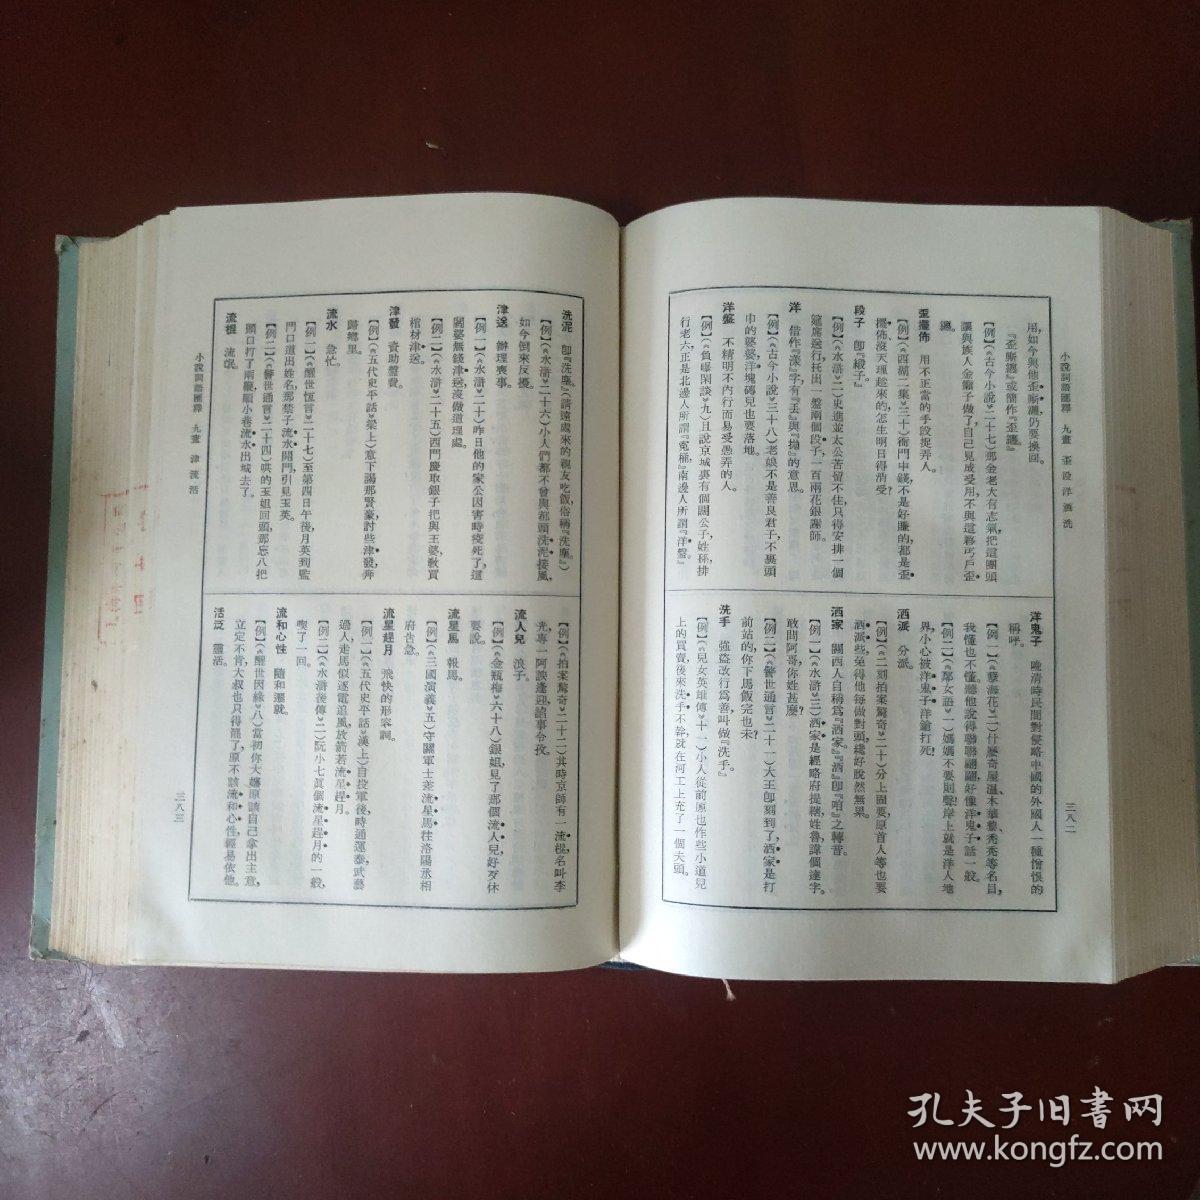 小說詞語匯釋　九畫　歪段洋洒洗
三八二
用,如今與他歪廝纏,仍要換回。
『歪廝纏』或簡作『歪纏』。
【例】(《古今小說》二十七)那金老大有志氣,把這團頭
讓與族人金癩子做了,自己見成受用,不與這夥丐戶歪
纏。
歪擺佈　用不正當的手段捉弄人。
【例】(《西湖二集》三十)衙門中錢,不是好賺的,都是歪
擺佈、沒天理趁來的,怎生明日得消受?
段子　卽『緞子』。
【例】(《水滸》二)史進並太公苦留不住,只得安排一個
筵席送行,托出一盤兩個段子、一百兩花銀謝師。
洋　借作『漾』字,有『丟』與『拋』的意思。
【例】(《古今小說》三十八)老娘不是善良君子,不裹頭
巾的婆婆,洋塊磚兒也要落地。
洋盤　不精明不內行而易受愚弄的人。
【例】(《負曝閑談》九)且說京城裏有個闊公子,姓孫,排
行老六,正是北邊人所謂『冤桶』,南邊人所謂『洋盤』。
洋鬼子　晚清時民間對侵略中國的外國人一種憎恨的
稱呼。
【例一】(《孽海花》二)什麼奇屋溫、木華黎、禿禿等名目,
我懂也不懂,聽他說得聯聯翩翩,好像洋鬼子話一般。
【例二】(《鄰女語》一)媽媽不要則聲!岸上就是洋人地
界,小心被洋鬼子洋鎗打死!
洒派　分派。
【例】(《二刻拍案驚奇》二十)分上固要,原首人等也要
洒派些,免得他每做對頭,纔好脫然無累。
洒家　關西人自稱爲『洒家』。『洒』卽『咱』之轉音。
【例一】(《水滸》三)洒家是經略府提轄,姓魯,諱個達字。
敢問阿哥,你姓甚麼?
【例二】(《警世通言》二十一)大王卽刻到了,洒家是打
前站的,你下馬飯完也未?
洗手　強盜改行爲善,叫做『洗手』。
【例】(《兒女英雄傳》十一)小人從前原也作些小道兒
上的買賣,後來洗手不幹,就在河工上充了一個夫頭。
小說詞語匯釋　九畫　津流活
三八三
洗泥　卽『洗塵』。(請遠處來的親友吃飯,俗稱『洗塵』。)
【例】(《水滸》二十六)小人們都不曾與都頭洗泥接風,
如今倒來反擾。
津送　辦理喪事。
【例一】(《水滸》二十)昨日他的家公因害時疫死了,這
閻婆無錢津送,沒做道理處。
【例二】(《水滸》二十五)西門慶取銀子把與王婆,敎買
棺材津送。
津發　資助盤費。
【例】(《五代史平話》梁上)意下謁那賢豪,討些津發,奔
歸鄉里。
流水　急忙。
【例一】(《醒世恆言》二十七)至第四日午後,月英到監
門口道出姓名,那禁子流水開門引見玉英。
【例二】(《警世通言》二十四)哄的玉姐回頭,那忘八把
頭口打了兩鞭,順小巷流水出城去了。
流棍　流氓。
【例】(《拍案驚奇》二十二)其時京師有一流棍,名叫李
光,專一阿諛逢迎,諂事令孜。
流人兒　浪子。
【例】(《金瓶梅》六十八)銀姐見了那個流人兒,好歹休
要說。
流星馬　報馬。
【例】(《三國演義》五)守關軍士差流星馬往洛陽丞相
府告急。
流星趕月　飛快的形容詞。
【例一】(《五代史平話》漢上)自投軍後,時通運泰,武藝
過人,走馬似逐電追風,放箭若流星趕月。
【例二】(《水滸後傳》二)阮小七眞個流星趕月的一般,
喫了一回。
流和心性　隨和遷就。
【例】(《醒世因緣》八)當初你大嬸原該自己拿出主意,
立定不肯,大叔也只得罷了,原不該流和心性,輕易依他。
活泛　靈活。
孔夫子旧书网
www.kongfz.com